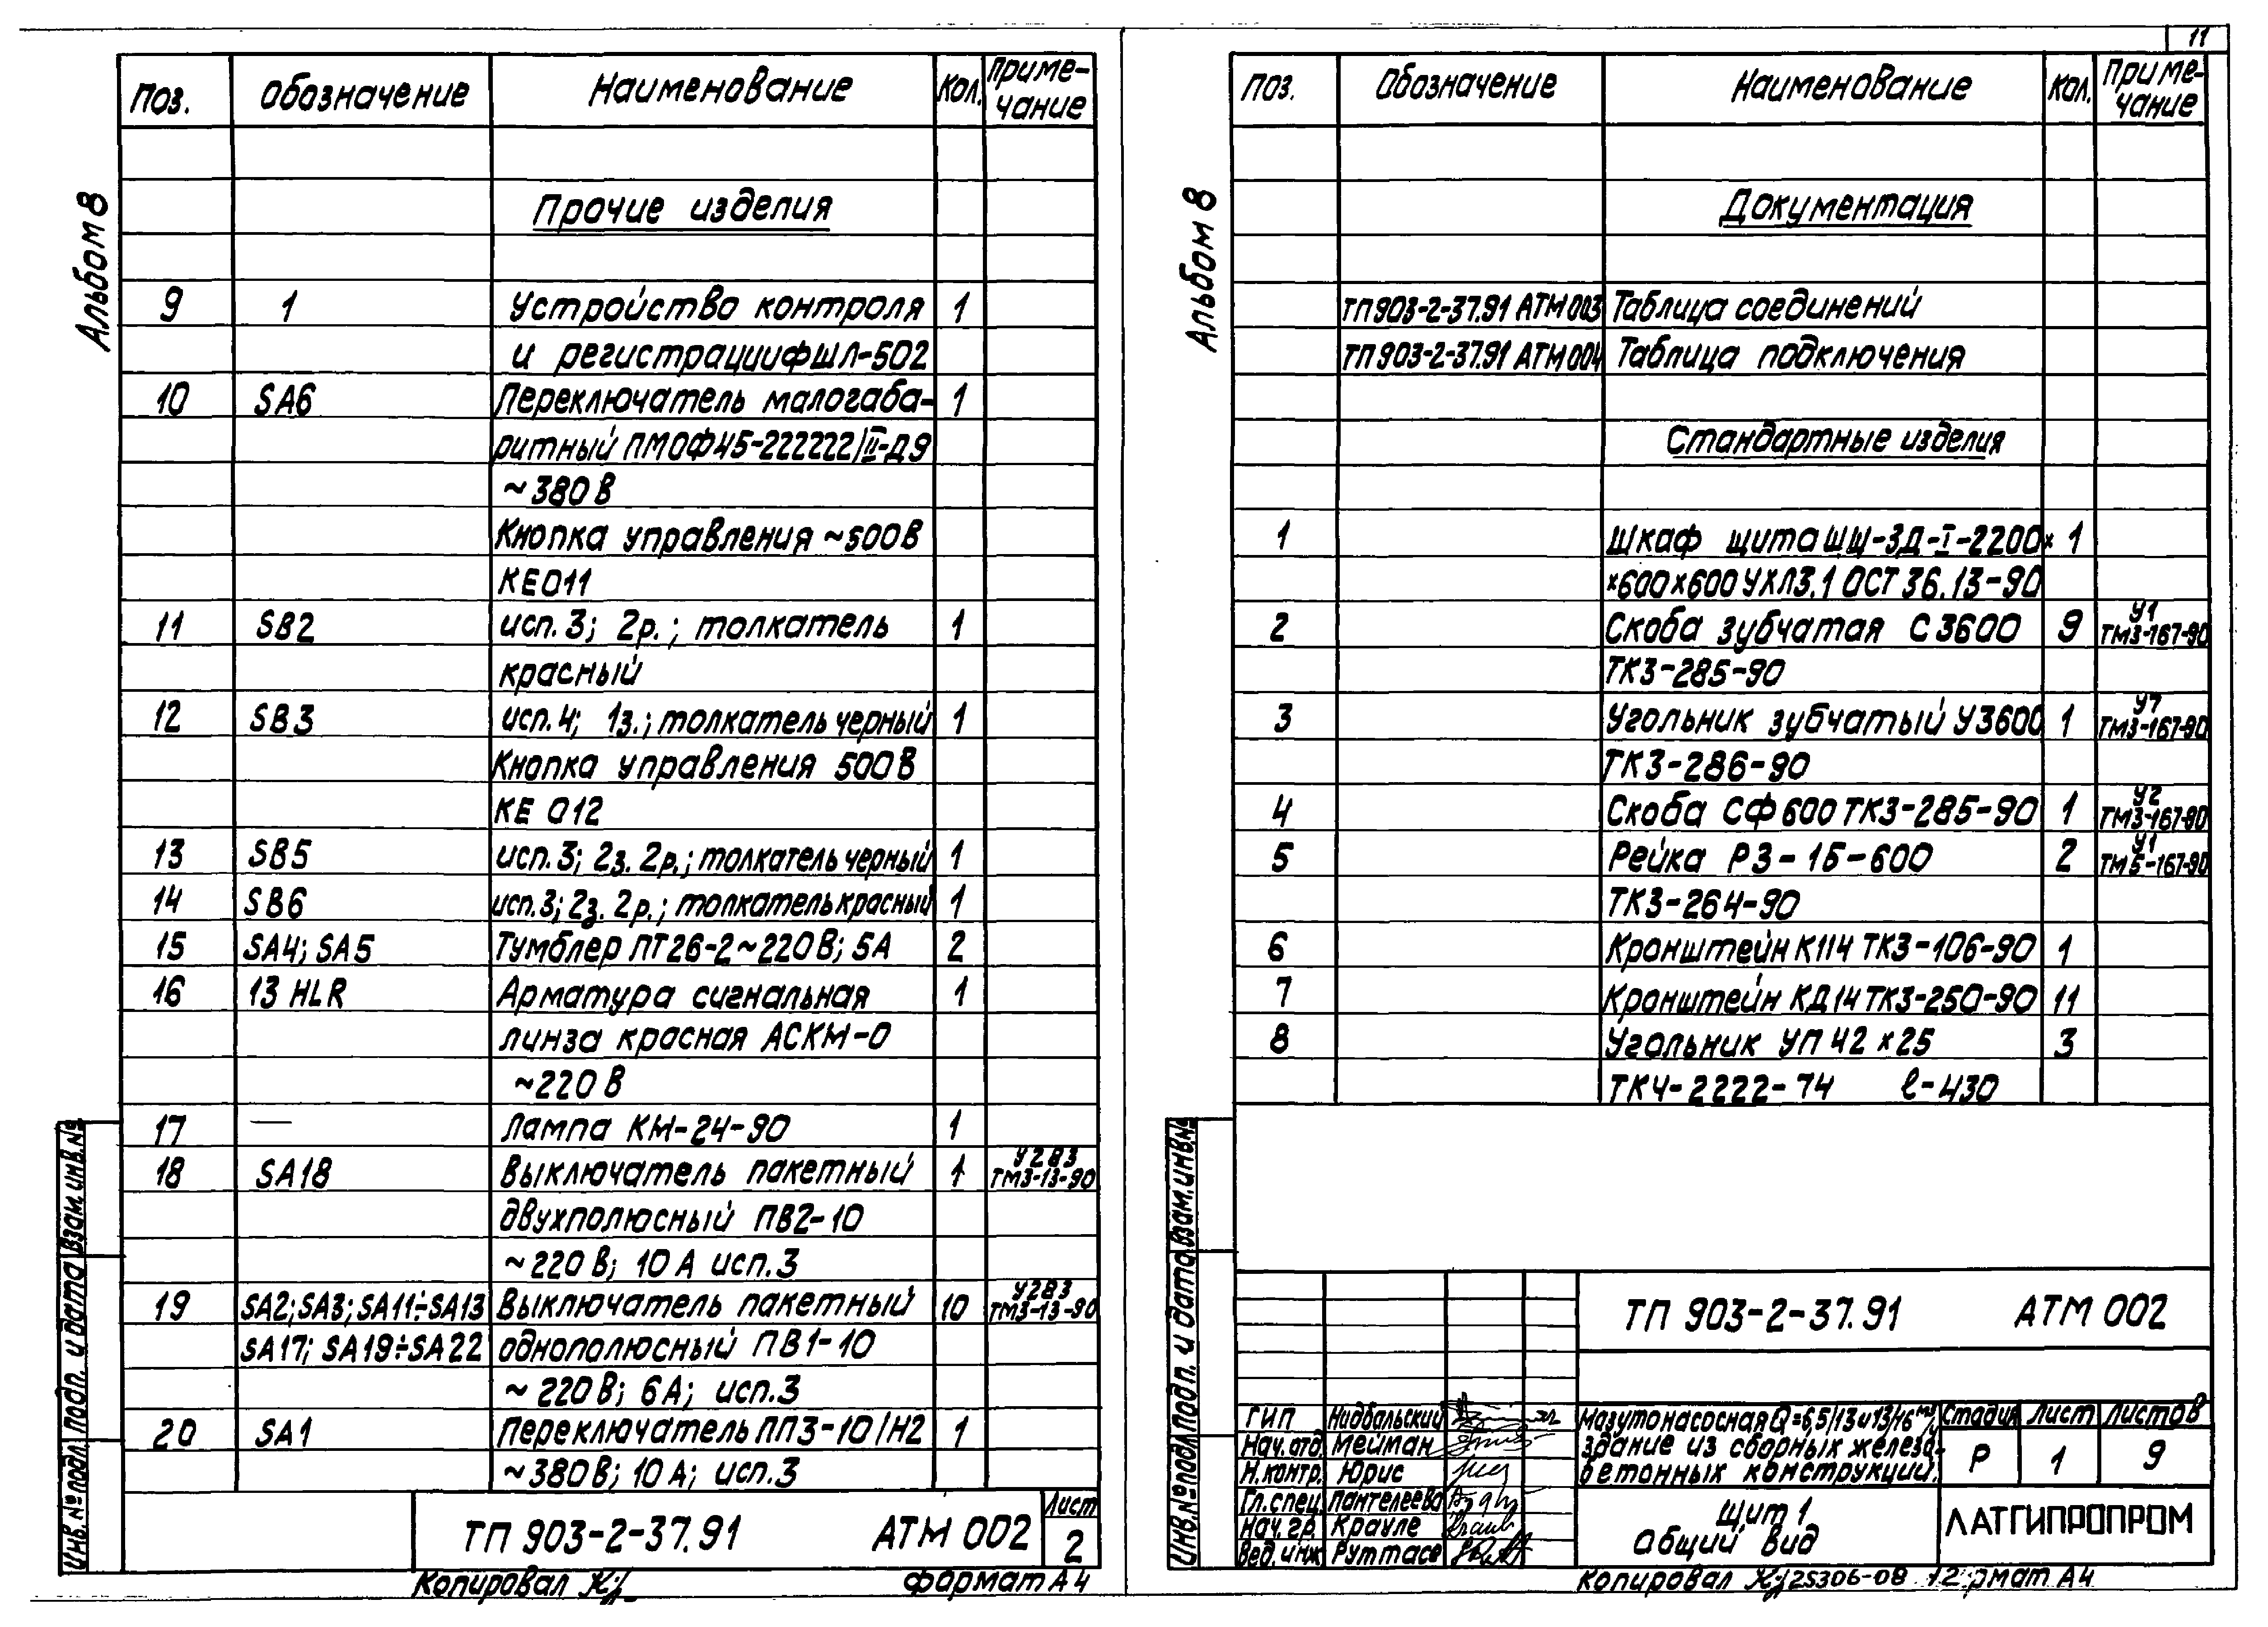 11
Альбом 8
Поз. Обозначение Наименование Кол. Приме-
чание
Прочие изделия
9 1 Устройство контроля 1
и регистрации ФЩЛ-502
10 SA6 Переключатель малогаба- 1
ритный ПМОФ45-222222/II-Д9
~380В
Кнопка управления ~500В
КЕ011
11 SB2 исп. 3; 2р.; толкатель 1
красный
12 SB3 исп. 4; 1з.; толкатель черный 1
Кнопка управления 500В
КЕ 012
13 SB5 исп. 3; 2з. 2р.; толкатель черный 1
14 SB6 исп. 3; 2з. 2р.; толкатель красный 1
15 SA4; SA5 Тумблер ПТ26-2~220В; 5А 2
16 13 HLR Арматура сигнальная 1
линза красная АСКМ-0
~220В
17 — Лампа КМ-24-90 1
18 SA18 Выключатель пакетный 1 У283
ТМ3-13-90
двухполюсный ПВ2-10
~220В; 10А исп. 3
19 SA2; SA3; SA11÷SA13 Выключатель пакетный 10 У283
ТМ3-13-90
SA17; SA19÷SA22 однополюсный ПВ1-10
~220В; 6А; исп. 3
20 SA1 Переключатель ПП3-10/Н2 1
~380В; 10А; исп. 3
ТП 903-2-37.91 АТМ 002
Лист
2
Копировал
формат А4
Инв.№подл. Подп. и дата Взам.инв.№
Альбом 8
Поз. Обозначение Наименование Кол. Приме-
чание
Документация
ТП903-2-37.91 АТМ003 Таблица соединений
ТП903-2-37.91 АТМ004 Таблица подключения
Стандартные изделия
1 Шкаф щита ЩЩ-ЗД-I-2200× 1
×600×600 УХЛ3.1 ОСТ 36.13-90
2 Скоба зубчатая С3600 9 У1
ТМ3-167-90
ТК3-285-90
3 Угольник зубчатый У3600 1 У7
ТМ3-167-90
ТК3-286-90
4 Скоба СФ600 ТК3-285-90 1 У2
ТМ3-167-90
5 Рейка Р3-15-600 2 У1
ТМ5-167-90
ТК3-264-90
6 Кронштейн К114 ТК3-106-90 1
7 Кронштейн КД14 ТК3-250-90 11
8 Угольник УП 42×25 3
ТК4-2222-74 ℓ-430
ТП 903-2-37.91 АТМ 002
ГИП Нидбальский
Нач.отд. Мейман
Н.контр. Юрис
Гл.спец. Пантелеева
Нач.гр. Крауле
Вед.инж Руттасе
Мазутонасосная Q=6,5/13 и 13/16 м³/ч
здание из сборных железо-
бетонных конструкций.
Стадия Лист Листов
Р 1 9
Щит 1
Общий вид
ЛАТГИПРОПРОМ
Копировал 25306-08 12 рмат А4
Инв.№подл. Подп. и дата Взам.инв.№